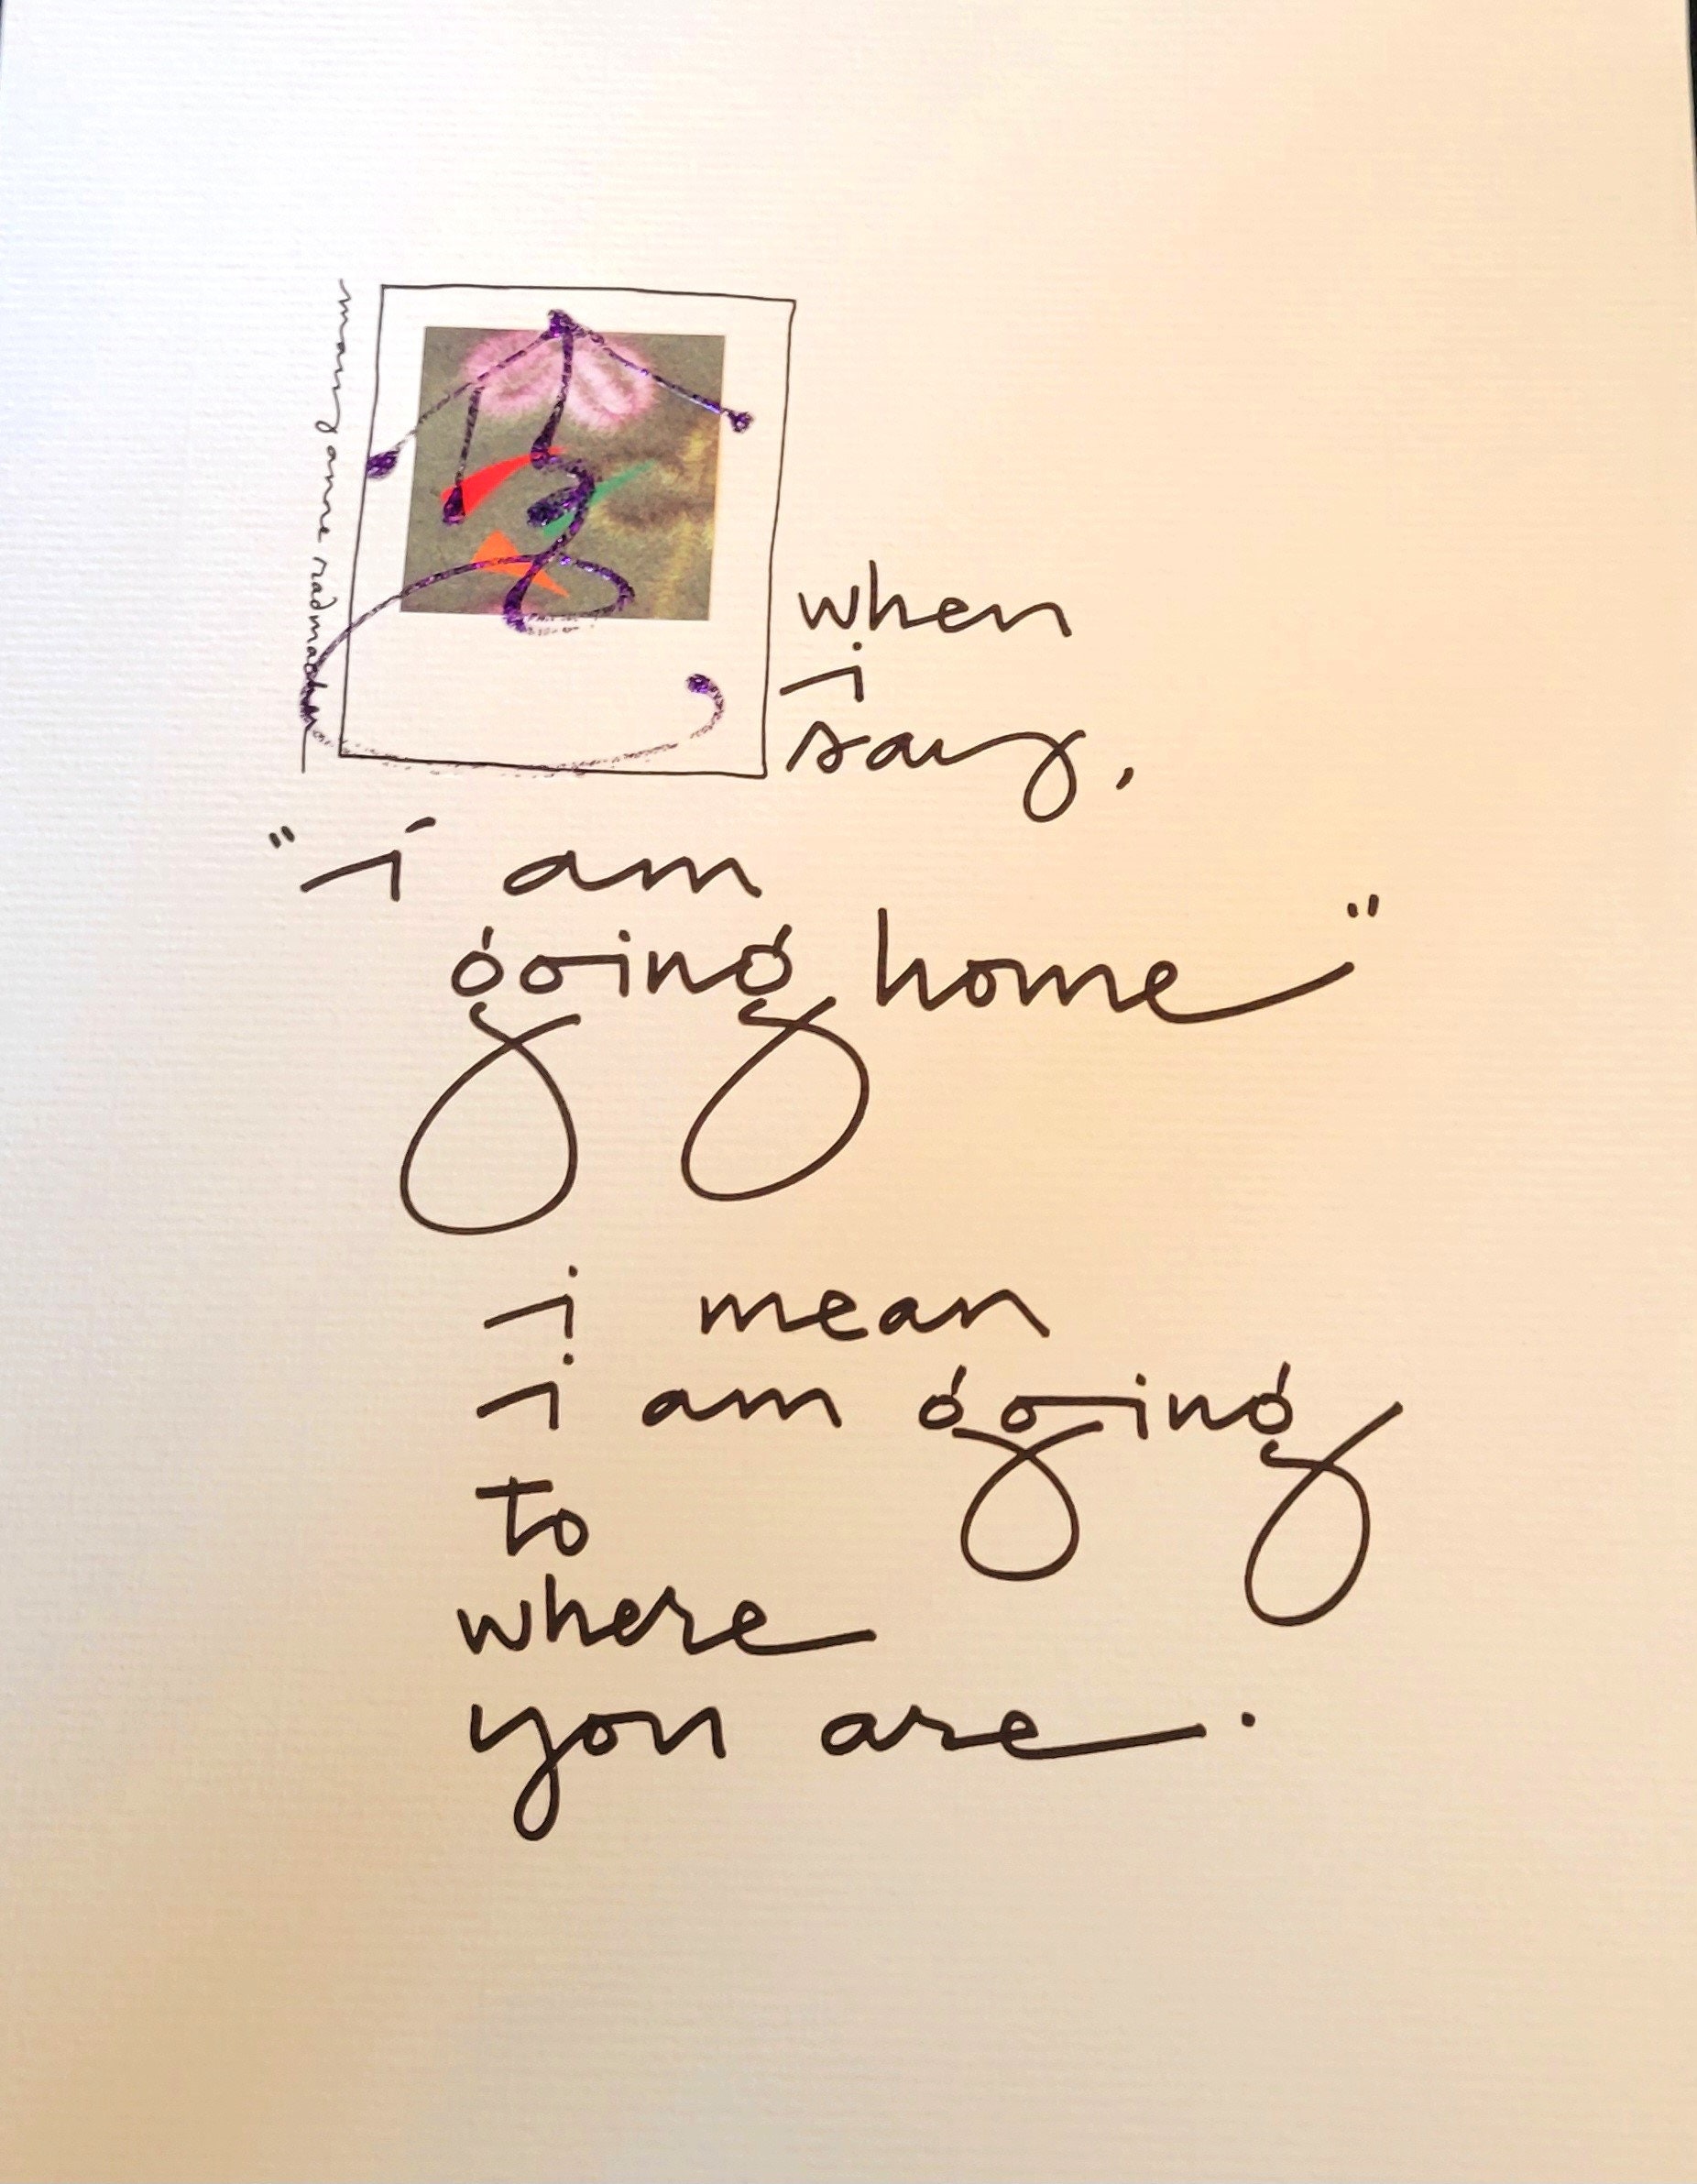 mary anne radmacher
when
i
say,
"i am
going home"
i mean
i am going
to
where
you are.